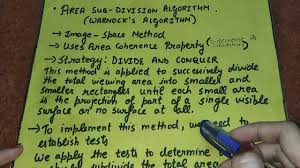 • AREA SUB-DIVISION ALGORITHM
(WARNOCK'S ALGORITHM)
→ Image-Space Method
→ Uses Area Coherence Property
→ Strategy: DIVIDE AND CONQUER
This method is applied to successively divide
the total viewing area into smaller and
smaller rectangles until each small area
is the projection of part of a single visible
surface or no surface at all.
→ To implement this method, we need to
establish tests
We apply the tests to determine
subdivide the total area